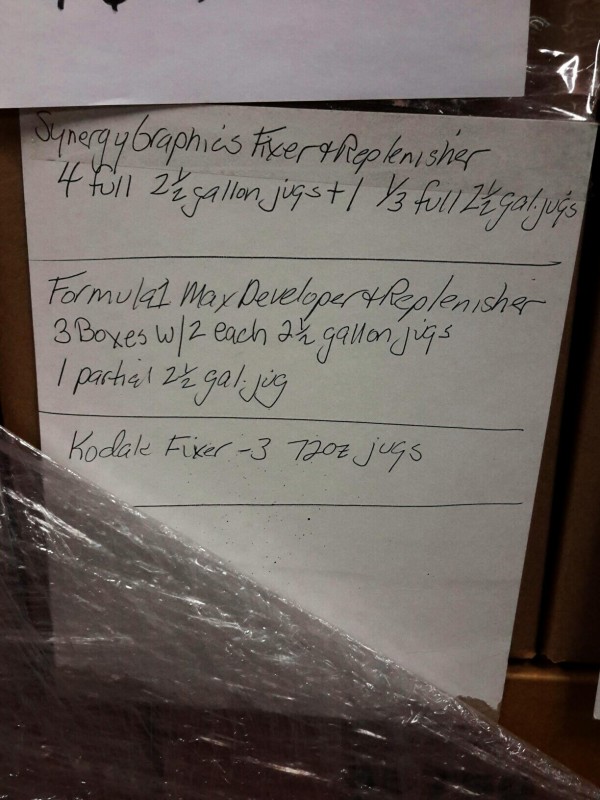 Synergy Graphics Fixer + Replenisher
4 full 2½ gallon jugs + 1 ⅓ full 2½ gal. jugs
Formula 1 Max Developer + Replenisher
3 Boxes w/2 each 2½ gallon jugs
1 partial 2½ gal. jug
Kodak Fixer - 3 72oz jugs